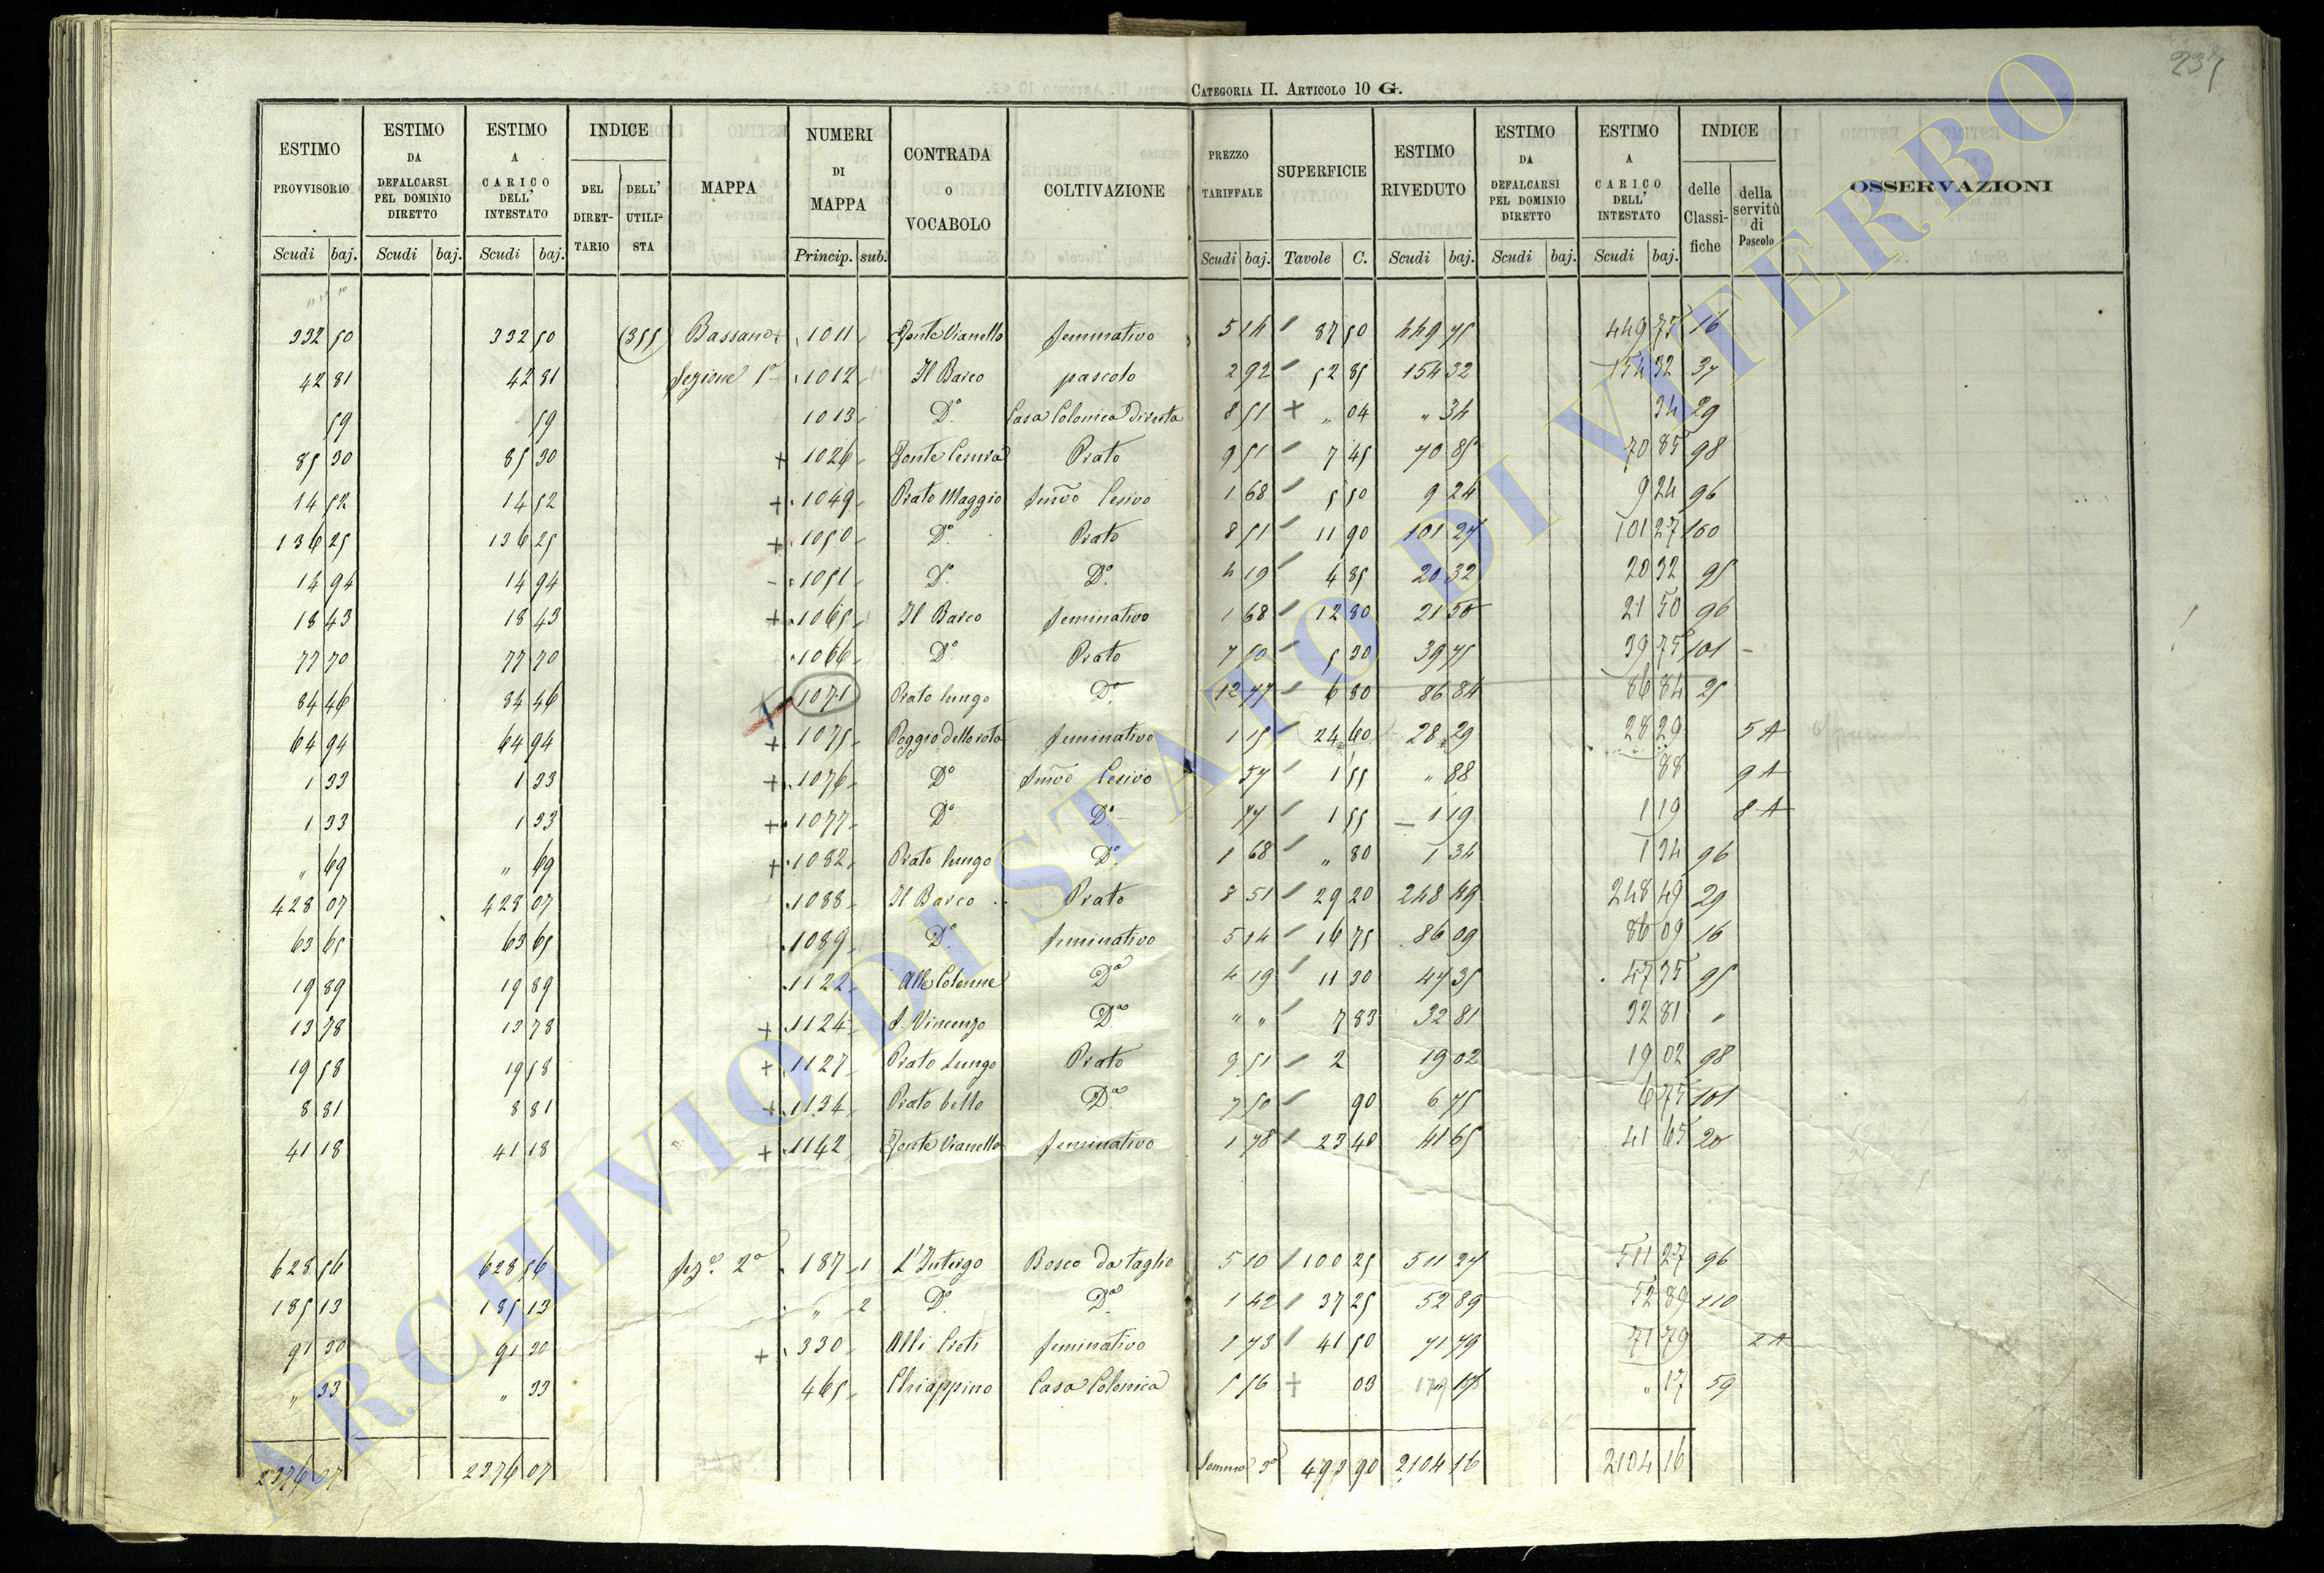 CATEGORIA II. ARTICOLO 10 G.
ESTIMO PROVVISORIO Scudi baj. ESTIMO DA DEFALCARSI PEL DOMINIO DIRETTO Scudi baj. ESTIMO A CARICO DELL' INTESTATO Scudi baj. INDICE DEL DIRET-TARIO DELL' UTILI-STA MAPPA NUMERI DI MAPPA Princip. sub. CONTRADA o VOCABOLO COLTIVAZIONE PREZZO TARIFFALE Scudi baj. SUPERFICIE Tavole C. ESTIMO RIVEDUTO Scudi baj. ESTIMO DA DEFALCARSI PEL DOMINIO DIRETTO Scudi baj. ESTIMO A CARICO DELL' INTESTATO Scudi baj. INDICE delle Classi-fiche della servitù di Pascolo OSSERVAZIONI
332 50 332 50 355 Bassano 1011 Fonte Vianello seminativo 5 14 87 50 449 75 449 75 16
42 81 42 81 Sezione 1a 1012 Il Barco pascolo 2 92 52 85 154 32 154 32 37
59 59 1013 Do. Casa Colonica Diruta 8 51 + " 04 " 34 34 29
85 30 85 30 + 1026 Fonte Prato 9 51 7 45 70 85 70 85 98
14 52 14 52 + 1049 Prato Maggio Semvo Cesivo 1 68 5 50 9 24 9 24 96
136 25 136 25 + 1050 Do. Prato 8 51 11 90 101 27 101 27 100
14 94 14 94 - 1051 Do. Do. 4 19 4 85 20 32 20 32 95
18 43 18 43 + 1065 Il Barco seminativo 1 68 12 80 21 50 21 50 96
77 70 77 70 1066 Do. Prato 7 50 5 30 39 75 39 75 101 -
84 46 84 46 1071 Prato lungo Do. 12 77 6 80 86 84 86 84 25
64 94 64 94 + 1075 Poggio della rota seminativo 1 15 24 60 28 29 28 29 5 A
1 33 1 33 + 1076 Do Semvo Cesivo 57 1 55 " 88 88 9 A
1 33 1 33 + 1077 Do Do. 77 1 55 1 19 1 19 8 A
" 69 " 69 + 1082 Prato lungo Do. 1 68 " 80 1 34 1 34 96
428 07 428 07 1088 Il Barco Prato 8 51 29 20 248 49 248 49 29
63 65 63 65 1089 Do. seminativo 5 14 16 75 86 09 86 09 16
19 89 19 89 1122 Alle Colonne Do 4 19 11 30 47 35 47 35 95
13 78 13 78 + 1124 S. Vincenzo Do " " 7 83 32 81 32 81 "
19 58 19 58 + 1127 Prato Lungo Prato 9 51 2 19 02 19 02 98
8 81 8 81 + 1134 Prato bello Do 7 50 90 6 75 6 75 101
41 18 41 18 + 1142 Fonte Vianello seminativo 1 78 23 40 41 65 41 65 20
628 56 628 56 Seze. 2a 187 1 L'Intergo Bosco da taglio 5 10 100 25 511 27 511 27 96
185 13 185 13 " 2 Do. Do 1 42 37 25 52 89 52 89 110
91 30 91 30 + 330 Alli Preti seminativo 1 73 41 50 71 79 71 79 2 A
" 33 " 33 465 Chiappino Casa Colonica 5 56 + 03 " 17 59
2376 07 2376 07 Somma 493 90 2104 16 2104 16
ARCHIVIO DI STATO DI VITERBO